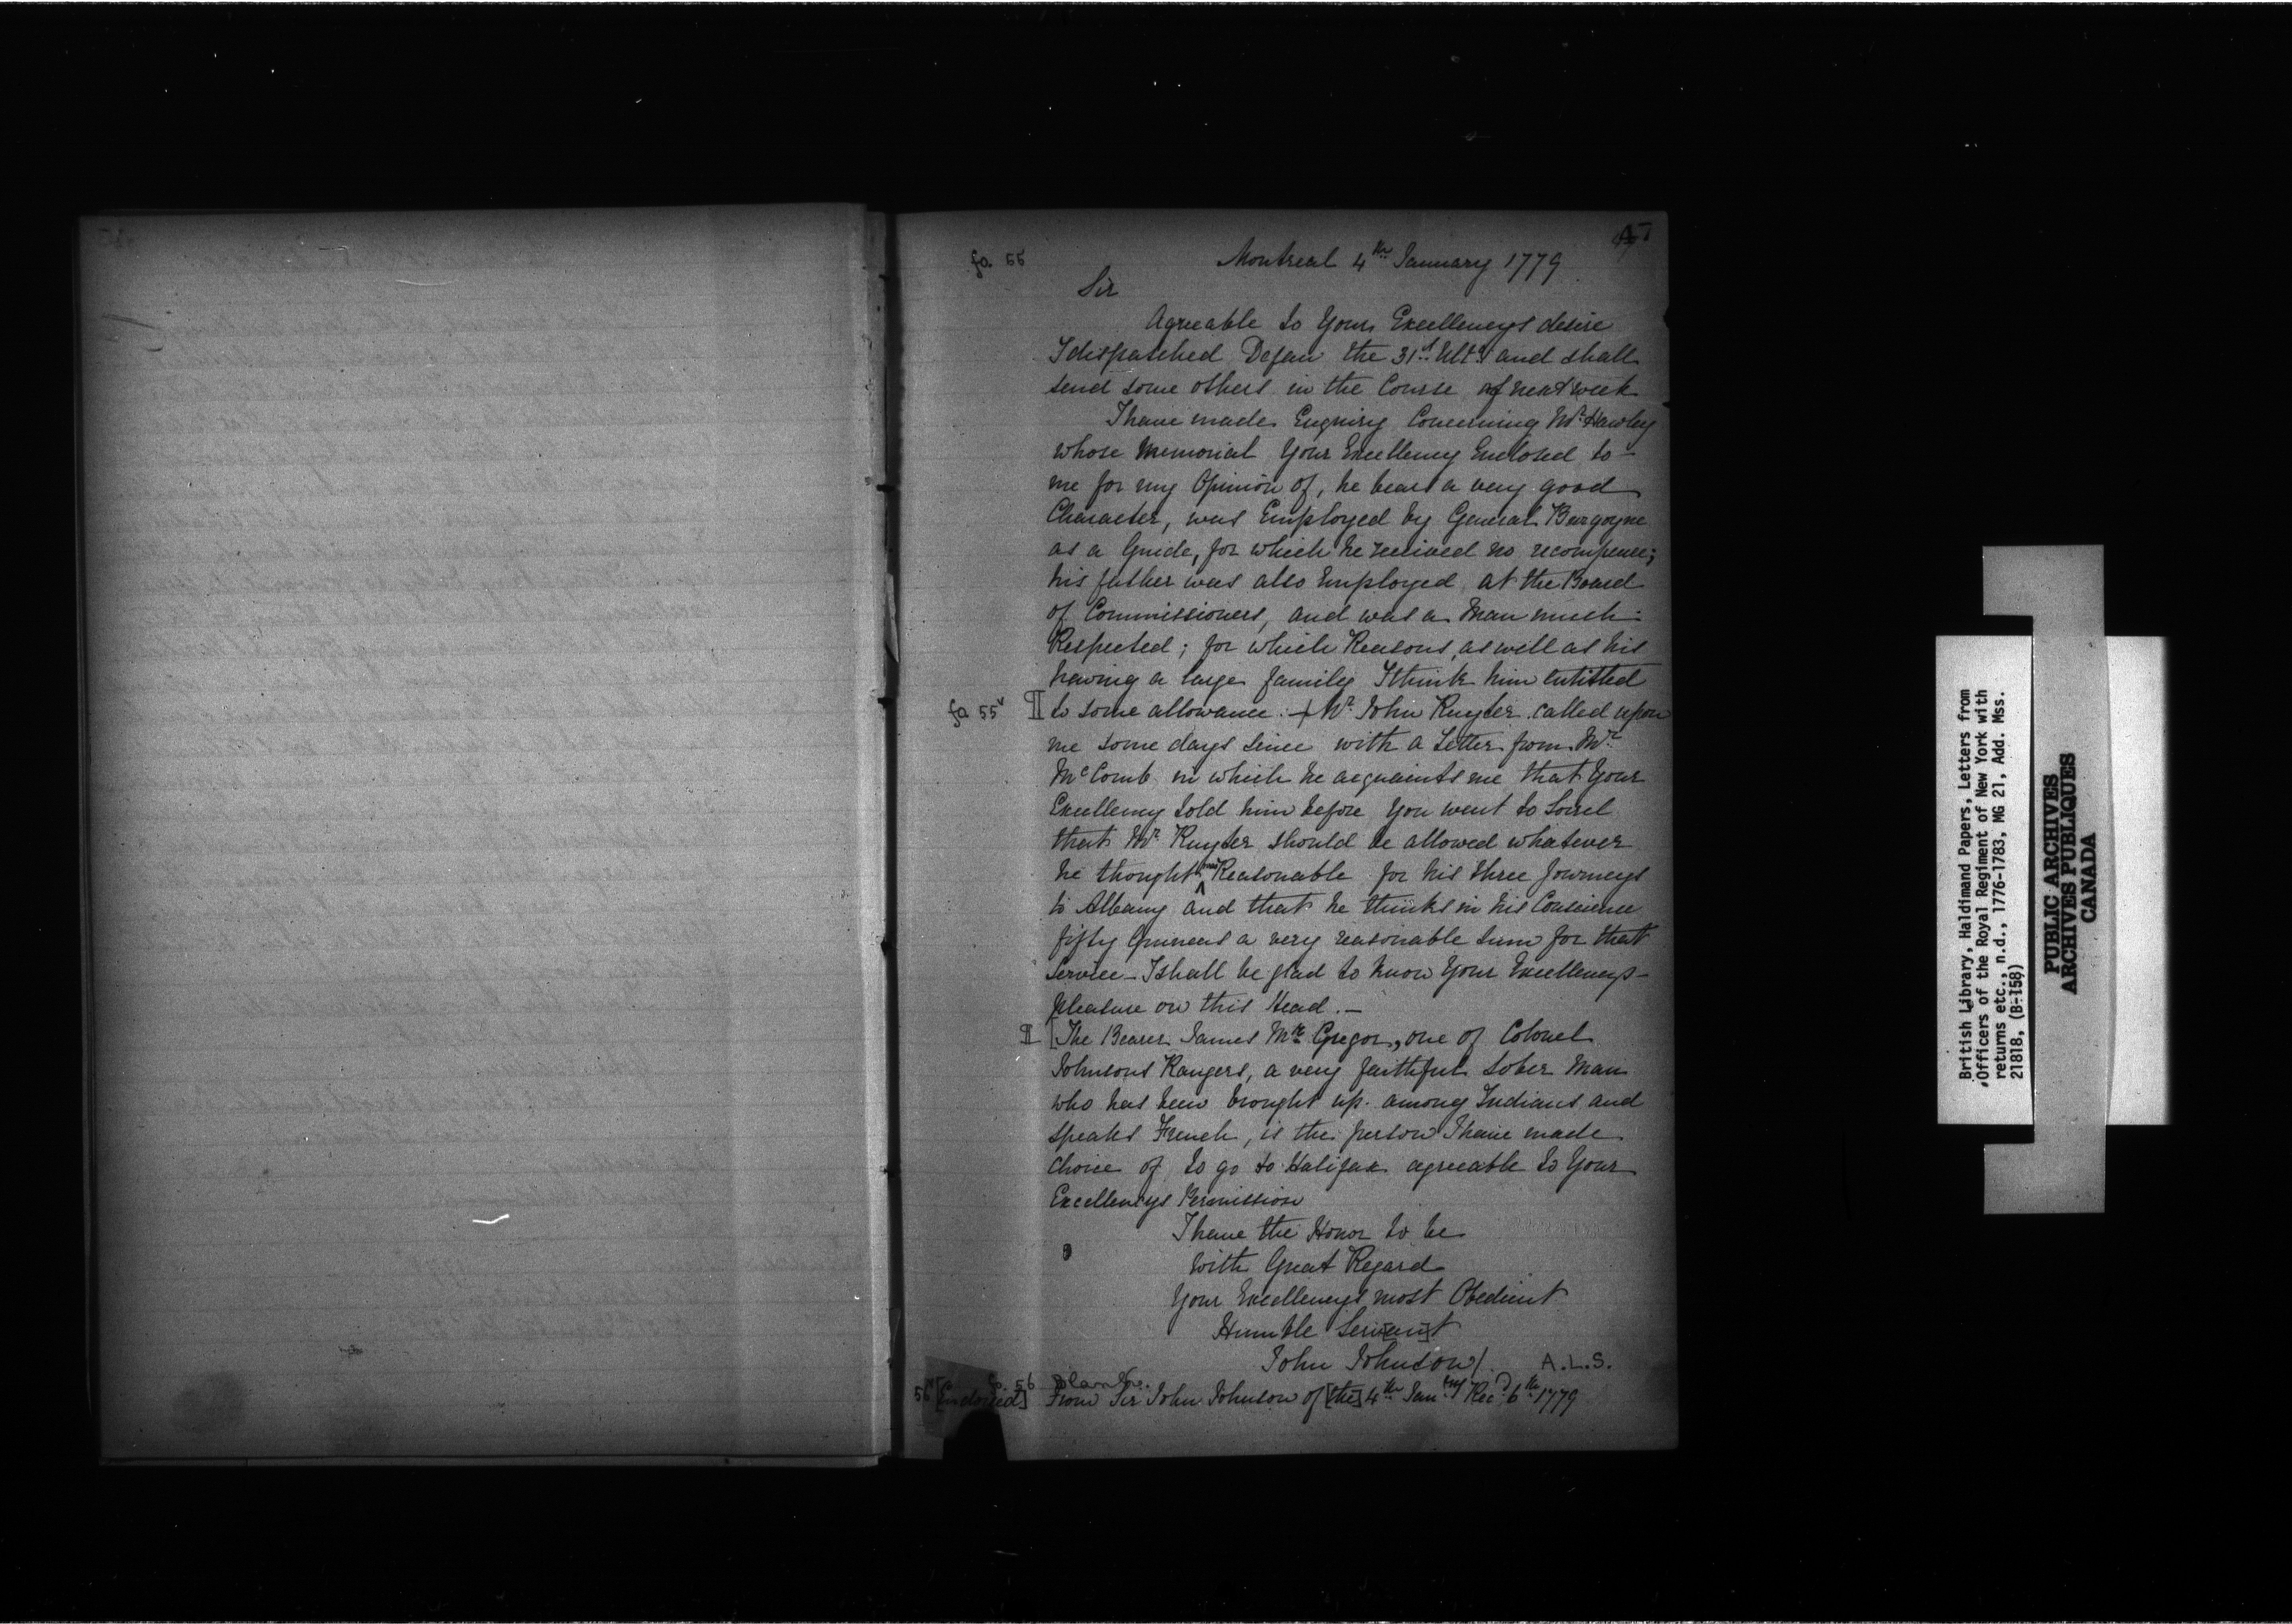 fo. 55
Montreal 4th January 1779
Sir
Agreable to Your Excellencys desire
I dispatched Dejan the 31st Ulto and shall
send some others in the Course of next week
I have made Enquiry Concerning Mr Hawley
whose Memorial Your Excellency Enclosed to
me for my Opinion of, he bears a very good
Character, was Employed by General Burgoyne
as a Guide, for which he received no recompence;
his father was also Employed at the Board
of Commissioners, and was a Man much
Respected; for which Reasons, as well as his
having a large family I think him entitled
fo 55v to some allowance. + Mr John Ruyter called upon
me some days since with a Letter from Mr
McComb in which he acquaints me that Your
Excellency told him before You went to Sorel
that Mr Ruyter should be allowed whatever
he thought was Reasonable for his three Journeys
to Albany and that he thinks in his Conscience
fifty Guineas a very reasonable Sum for that
Service - I shall be glad to know Your Excellencys
pleasure on this Head. -
[The Bearer James Mc Gregor, one of Colonel
Johnsons Rangers, a very faithful Sober Man
who has been brought up among Indians and
speaks French, is the person I have made
choice of to go to Halifax agreeable to Your
Excellencys Permission
I have the Honor to be
with Great Regard
Your Excellencys most Obedient
Humble Ser[van]t
John Johnson/. A.L.S.
fo. 56 blank.
56v [Endorsed] From Sir John Johnson of [the] 4th Jan[ry] Rec'd 6th 1779
British Library, Haldimand Papers, Letters from
Officers of the Royal Regiment of New York with
returns etc., n.d., 1776-1783, MG 21, Add. Mss.
21818, (B-158)
PUBLIC ARCHIVES
ARCHIVES PUBLIQUES
CANADA